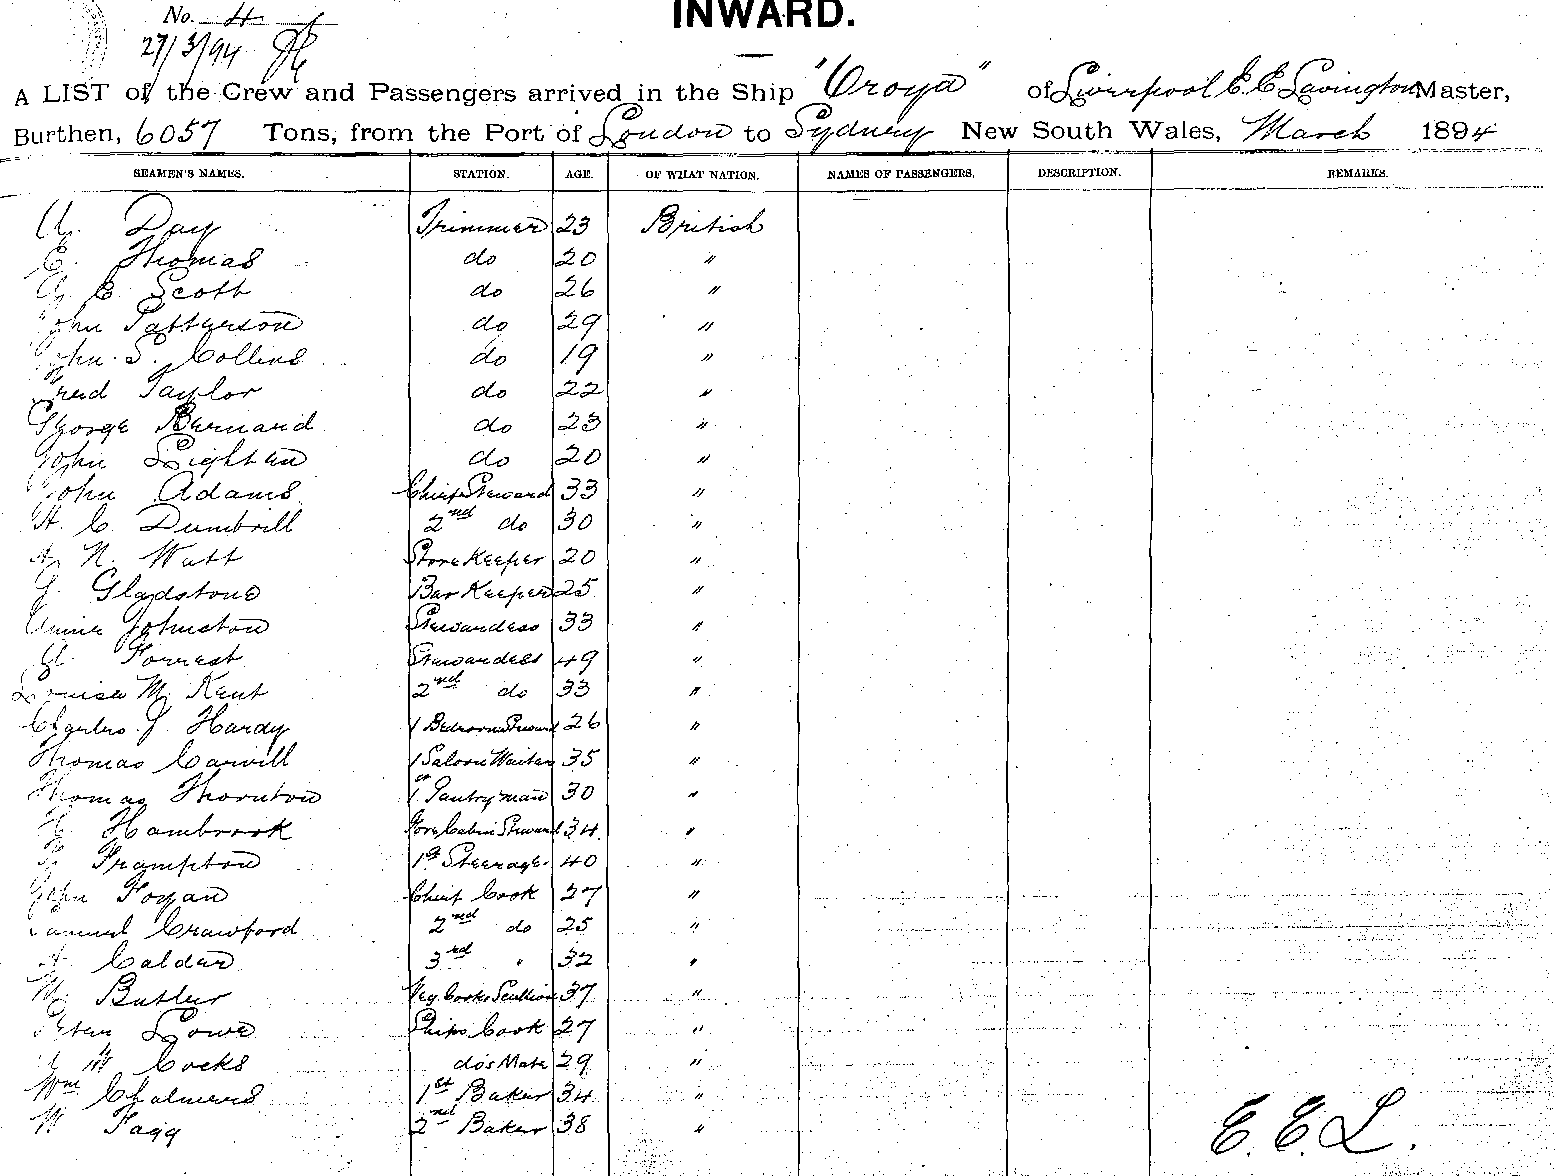 No. 4
INWARD.
27/3/94
A LIST of the Crew and Passengers arrived in the Ship "Oroya" of Liverpool E. E. Lavington Master,
Burthen, 6057 Tons, from the Port of London to Sydney New South Wales, March 1894
SEAMEN'S NAMES. STATION. AGE. OF WHAT NATION. NAMES OF PASSENGERS. DESCRIPTION. REMARKS.
Day Trimmer 23 British
E. Thomas do 20 "
E. Scott do 26 "
John Patterson do 29 "
John S. Collins do 19 "
Fred Taylor do 22 "
George Bernard do 23 "
John Leighton do 20 "
John Adams Chief Steward 33 "
H. C. Dumbrill 2nd do 30 "
N. Watt Store Keeper 20 "
Gladstone Bar Keeper 25 "
Annie Johnston Stewardess 33 "
Forrest Stewardess 49 "
Louisa M. Kent 2nd do 33 "
Charles J. Hardy 1 Bedroom Steward 26 "
Thomas Carvill 1 Saloon Waiter 35 "
Thomas Thornton 1st Pantryman 30 "
Hambrook Fore Cabin Steward 34 "
Frampton 1st Steerage 40 "
John Fogan Chief Cook 27 "
Samuel Crawford 2nd do 25 "
A. Calder 3rd " 32 "
M. Butler Veg. Cook & Scullion 37 "
Peter Lowe Ships Cook 27 "
W Cocks do's Mate 29 "
Wm Chalmers 1st Baker 34 "
W Fagg 2nd Baker 38 "
E. E. L.